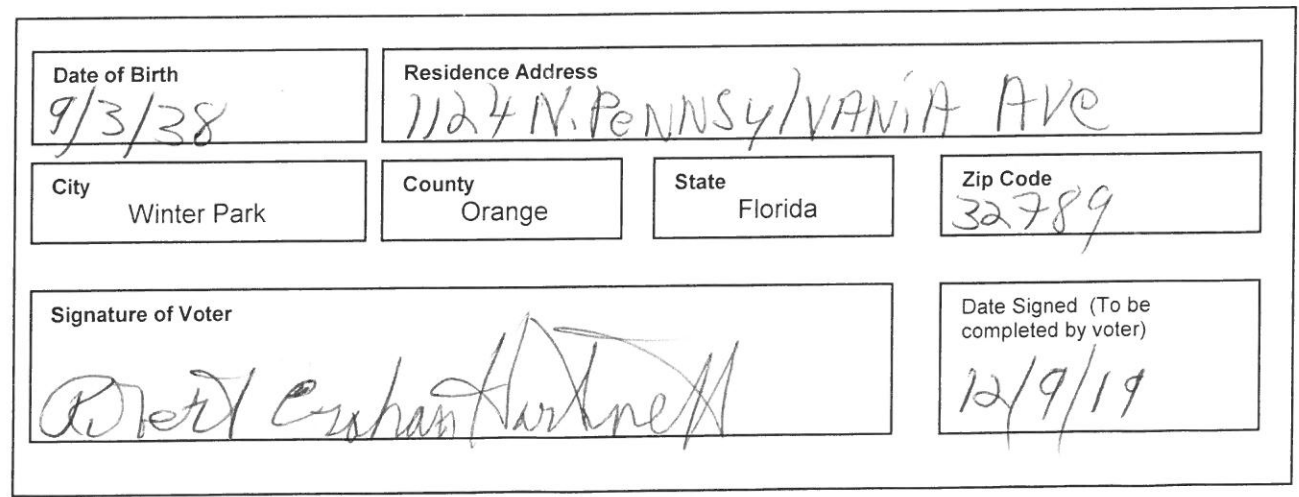 Date of Birth
9/3/38
Residence Address
1124 N. PeNNSylVANiA AVe
City
Winter Park
County
Orange
State
Florida
Zip Code
32789
Signature of Voter
Robert Graham Hartnett
Date Signed (To be
completed by voter)
12/9/19